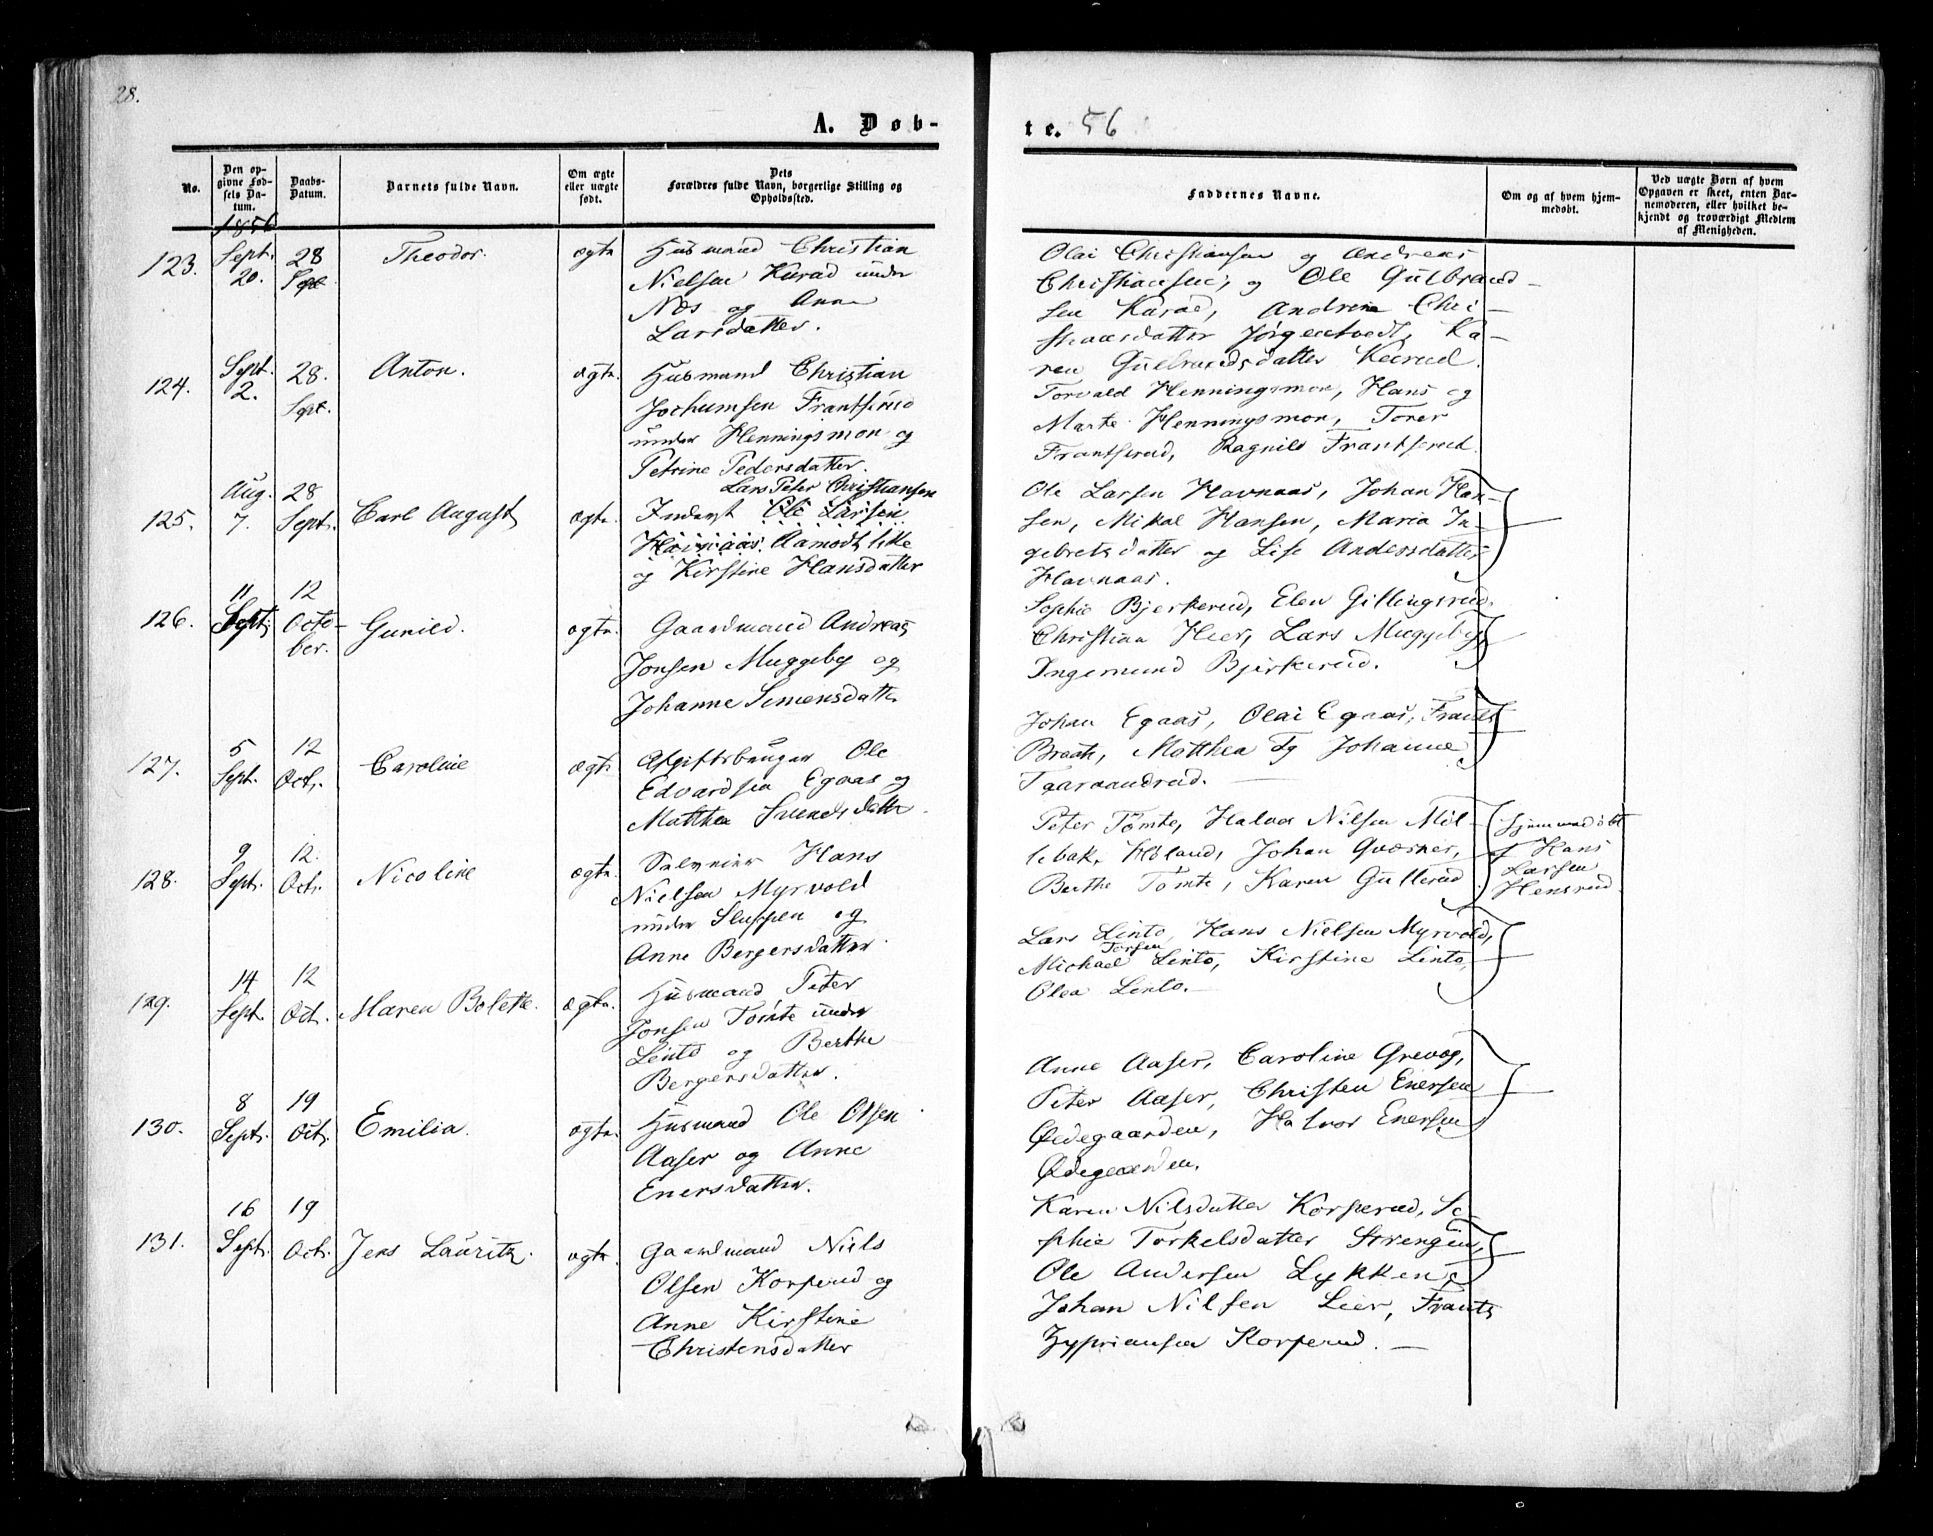 28.
A. Døb-
te. 56
No.
Den op-
givne Fød-
sels Da-
tum.
Daabs-
Datum.
Barnets fulde Navn.
Om ægte
eller uægte
født.
Dets
Forældres fulde Navn, borgerlige Stilling og
Opholdssted.
Faddernes Navne.
Om og af hvem hjem-
medøbt.
Ved uægte Børn af hvem
Opgaven er skeet, enten Bar-
nemoderen, eller hvilket be-
kjendt og troværdigt Medlem
af Menigheden.
1856
123. Sept. 20. 28 Sept. Theodor. ægte
Husmand Christian
Nielsen Kurad under
Næs og Anne
Larsdatter.
Olai Christiansen og Andreas
Christiansen, og Ole Gulbrand-
sen Kurad, Andrine Chri-
stiansdatter Jørgentvedt, Ka-
ren Gulbrandsdatter Kurud.
124. Sept. 2. 28. Sept. Anton. ægte.
Husmand Christian
Jochumsen Frantserud
under Henningsmon og
Petrine Pedersdatter.
Torvald Henningsmon, Hans og
Marte Henningsmon, Torer
Frantserud, Ragnild Frantserud.
125. Aug. 7. 28 Sept. Carl August ægte.
Lars Peter Christiansen
Inderst Ole Larsen
Havnaas. Aamodt lille
og Kirstine Hansdatter
Ole Larsen Havnaas, Johan Han-
sen, Mikal Hansen, Maria In-
gebretsdatter og Lise Andersdatter
Havnaas.
126. 11 Sept. 12 Octo-
ber. Gunild. ægte.
Gaardmand Andreas
Jonsen Muggeby og
Johanne Simensdatter
Sophie Bjerkerud, Elen Gillingsrud,
Christian Heer, Lars Muggeby,
Ingemund Bjerkerud.
127. 5 Sept. 12 Oct. Caroline ægte
Afgiftsbruger Ole
Edvardsen Egaas og
Matthea Svendsdatter.
Johan Egaas, Olai Egaas, Frants
Braate, Matthea og Johanne
Taaraandrud.
128. 9 Sept. 12. Oct. Nicoline ægte.
Selveier Hans
Nielsen Myrvold
under Sluppen og
Anne Bergersdatter.
Peter Tømte, Halvor Nilsen Mil-
lebak, Høland, Johan Qvæsner,
Berthe Tømte, Karen Gullerud
Hjemmedøbt
af Hans
Larsen
Hensrud
129. 14 Sept. 12 Oct. Maren Bolette. ægte.
Husmand Peter
Jonsen Tømte under
Lintо og Berthe
Bergersdatter.
Lars Linto, Hans Nielsen Myrvold,
Torsen
Michael Linto, Kirstine Linto,
Olea Linto.
130. 8 Sept. 19 Oct. Emilia. ægte.
Husmand Ole Olsen
Aaser og Anne
Enersdatter.
Anne Aaser, Caroline Grevog,
Peter Aaser, Christen Enersen
Ødegaarden, Halvor Enersen
Ødegaarden.
131. 16 Sept. 19 Oct. Jens Lauritz. ægte.
Gaardmand Niels
Olsen Korperud og
Anne Kirstine
Christensdatter
Karen Nilsdatter Korperud, So-
phie Torkelsdatter Strengen,
Ole Andersen Lykken,
Johan Nilsen Lier, Frants
Zypriansen Korperud.